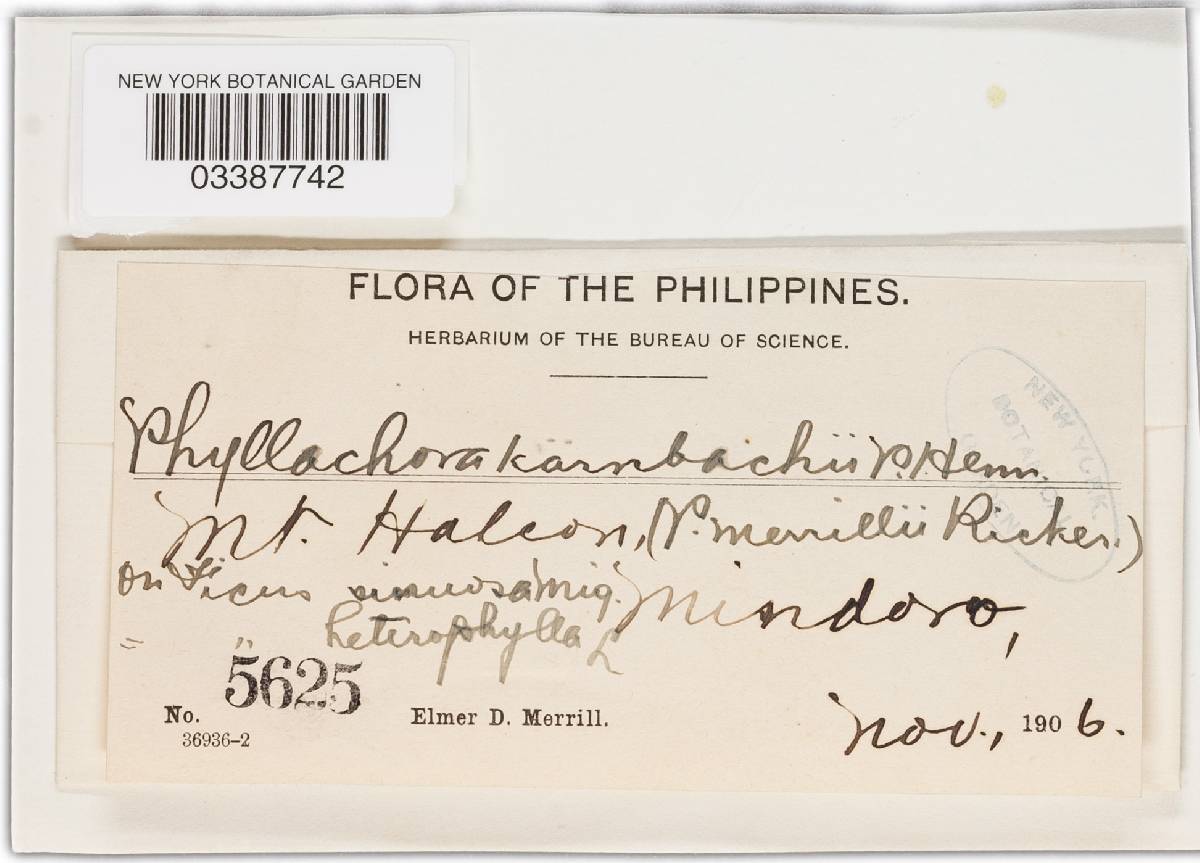 NEW YORK BOTANICAL GARDEN
03387742
FLORA OF THE PHILIPPINES.
HERBARIUM OF THE BUREAU OF SCIENCE.
NEW YORK
BOTANICAL
GARDEN
Phyllachora kärnbachii P. Henn.
Mt. Halcon, (P. merrillii Ricker.)
on Ficus sinuosa Miq. Mindoro,
" " heterophylla L
No. 5625 Elmer D. Merrill. Nov., 1906.
36936-2